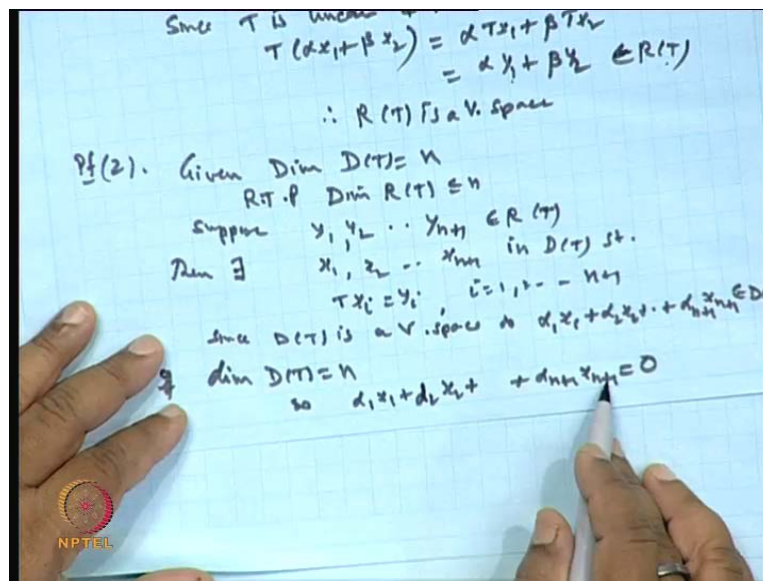 Since T is linear
T(αx₁ + βx₂) = αTx₁ + βTx₂
= αy₁ + βy₂ ∈ R(T)
∴ R(T) is a V. space
Pf(2). Given Dim D(T) = n
R.T.P Dim R(T) ≤ n
Suppose y₁, y₂ .. yₙ₊₁ ∈ R(T)
Then ∃ x₁, x₂ .. xₙ₊₁ in D(T) st.
Txᵢ = yᵢ, i = 1, 2, - - n+1
Since D(T) is a V. space so α₁x₁ + α₂x₂ + .. + αₙ₊₁xₙ₊₁ ∈ D
& dim D(T) = n
so α₁x₁ + α₂x₂ + + αₙ₊₁xₙ₊₁ = 0
NPTEL